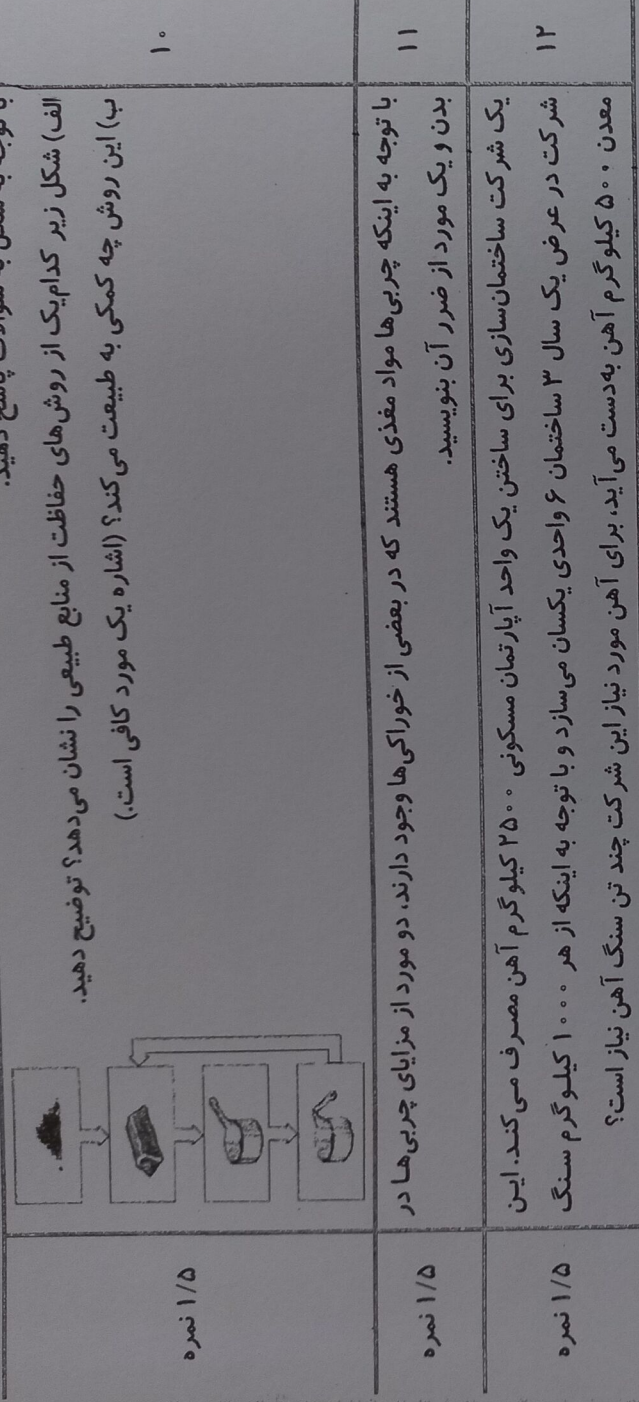 ۱۰
با توجه به شکل به سوالات پاسخ دهید.
الف) شکل زیر کدام‌یک از روش‌های حفاظت از منابع طبیعی را نشان می‌دهد؟ توضیح دهید.
ب) این روش چه کمکی به طبیعت می‌کند؟ (اشاره یک مورد کافی است.)
۱/۵ نمره
۱۱
با توجه به اینکه چربی‌ها مواد مغذی هستند که در بعضی از خوراکی‌ها وجود دارند، دو مورد از مزایای چربی‌ها در
بدن و یک مورد از ضرر آن بنویسید.
۱/۵ نمره
۱۲
یک شرکت ساختمان‌سازی برای ساختن یک واحد آپارتمان مسکونی ۲۵۰۰ کیلوگرم آهن مصرف می‌کند. این
شرکت در عرض یک سال ۳ ساختمان ۶ واحدی یکسان می‌سازد و با توجه به اینکه از هر ۱۰۰۰ کیلوگرم سنگ
معدن ۵۰۰ کیلوگرم آهن به‌دست می‌آید، برای آهن مورد نیاز این شرکت چند تن سنگ آهن نیاز است؟
۱/۵ نمره